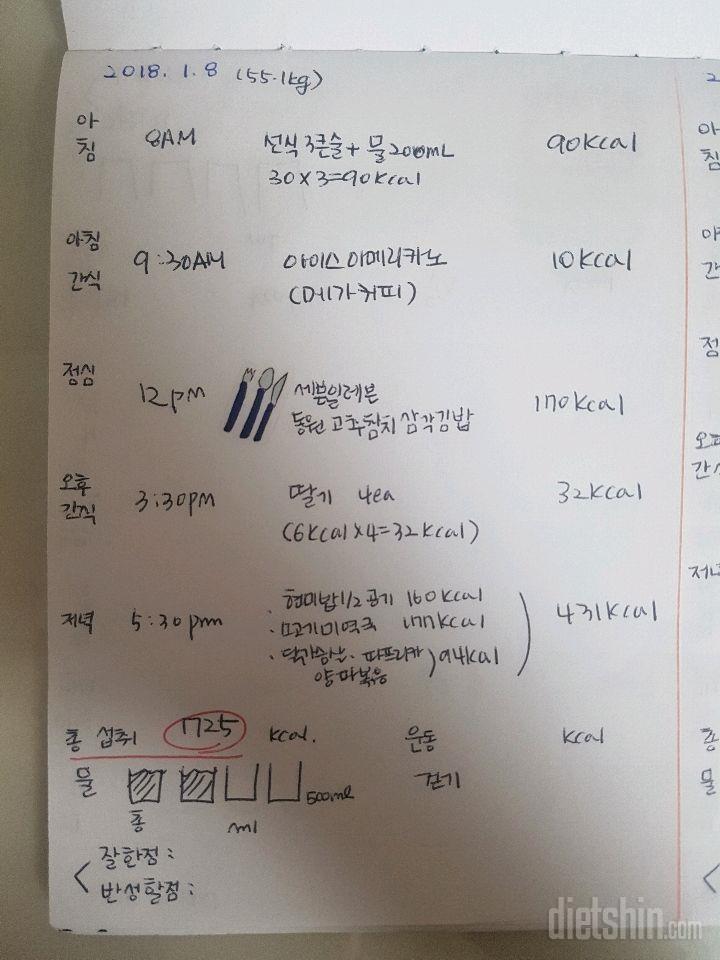 2018. 1. 8 (55.1kg)
아침 8AM 선식 3큰술 + 물 200mL 90kcal
30 x 3 = 90kcal
아침 간식 9:30AM 아이스 아메리카노 10kcal
(메가커피)
점심 12pm 세븐일레븐 170kcal
동원 고추참치 삼각김밥
오후 간식 3:30pm 딸기 4ea 32kcal
(6kcal x 4 = 32kcal)
저녁 5:30pm 431kcal
· 현미밥 1/2 공기 160kcal
· 모기미역국 177kcal
· 닭가슴살. 파프리카 양파볶음 ) 94kcal
총 섭취 1725 kcal. 운동 kcal
물 500ml 걷기
총 ml
< 잘한점 :
반성할점 :
2
아침
아
간
점
오후
간식
저녁
총
물
<
dietshin.com